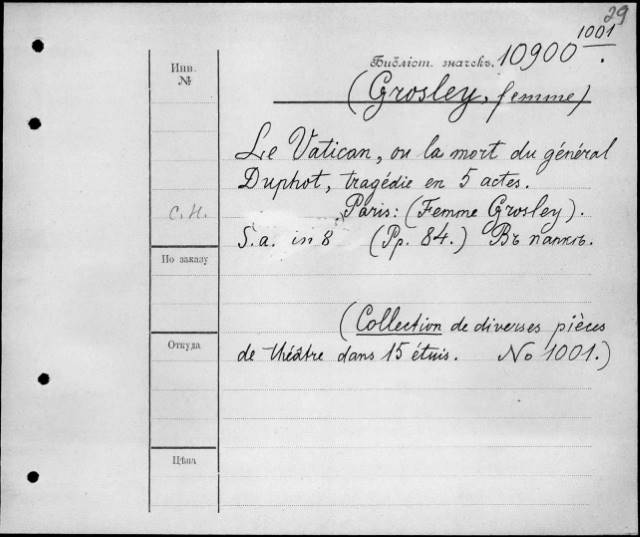 29
1001
Инв. №
Библіот. значекъ. 10900.
(Grosley, femme)
Le Vatican, ou la mort du général
Duphot, tragédie en 5 actes.
С.Н. Paris: (Femme Grosley).
S.a. in 8 (Pp. 84.) Въ папкѣ.
По заказу
(Collection de diverses pièces
Откуда de théâtre dans 15 étuis. No 1001.)
Цѣна